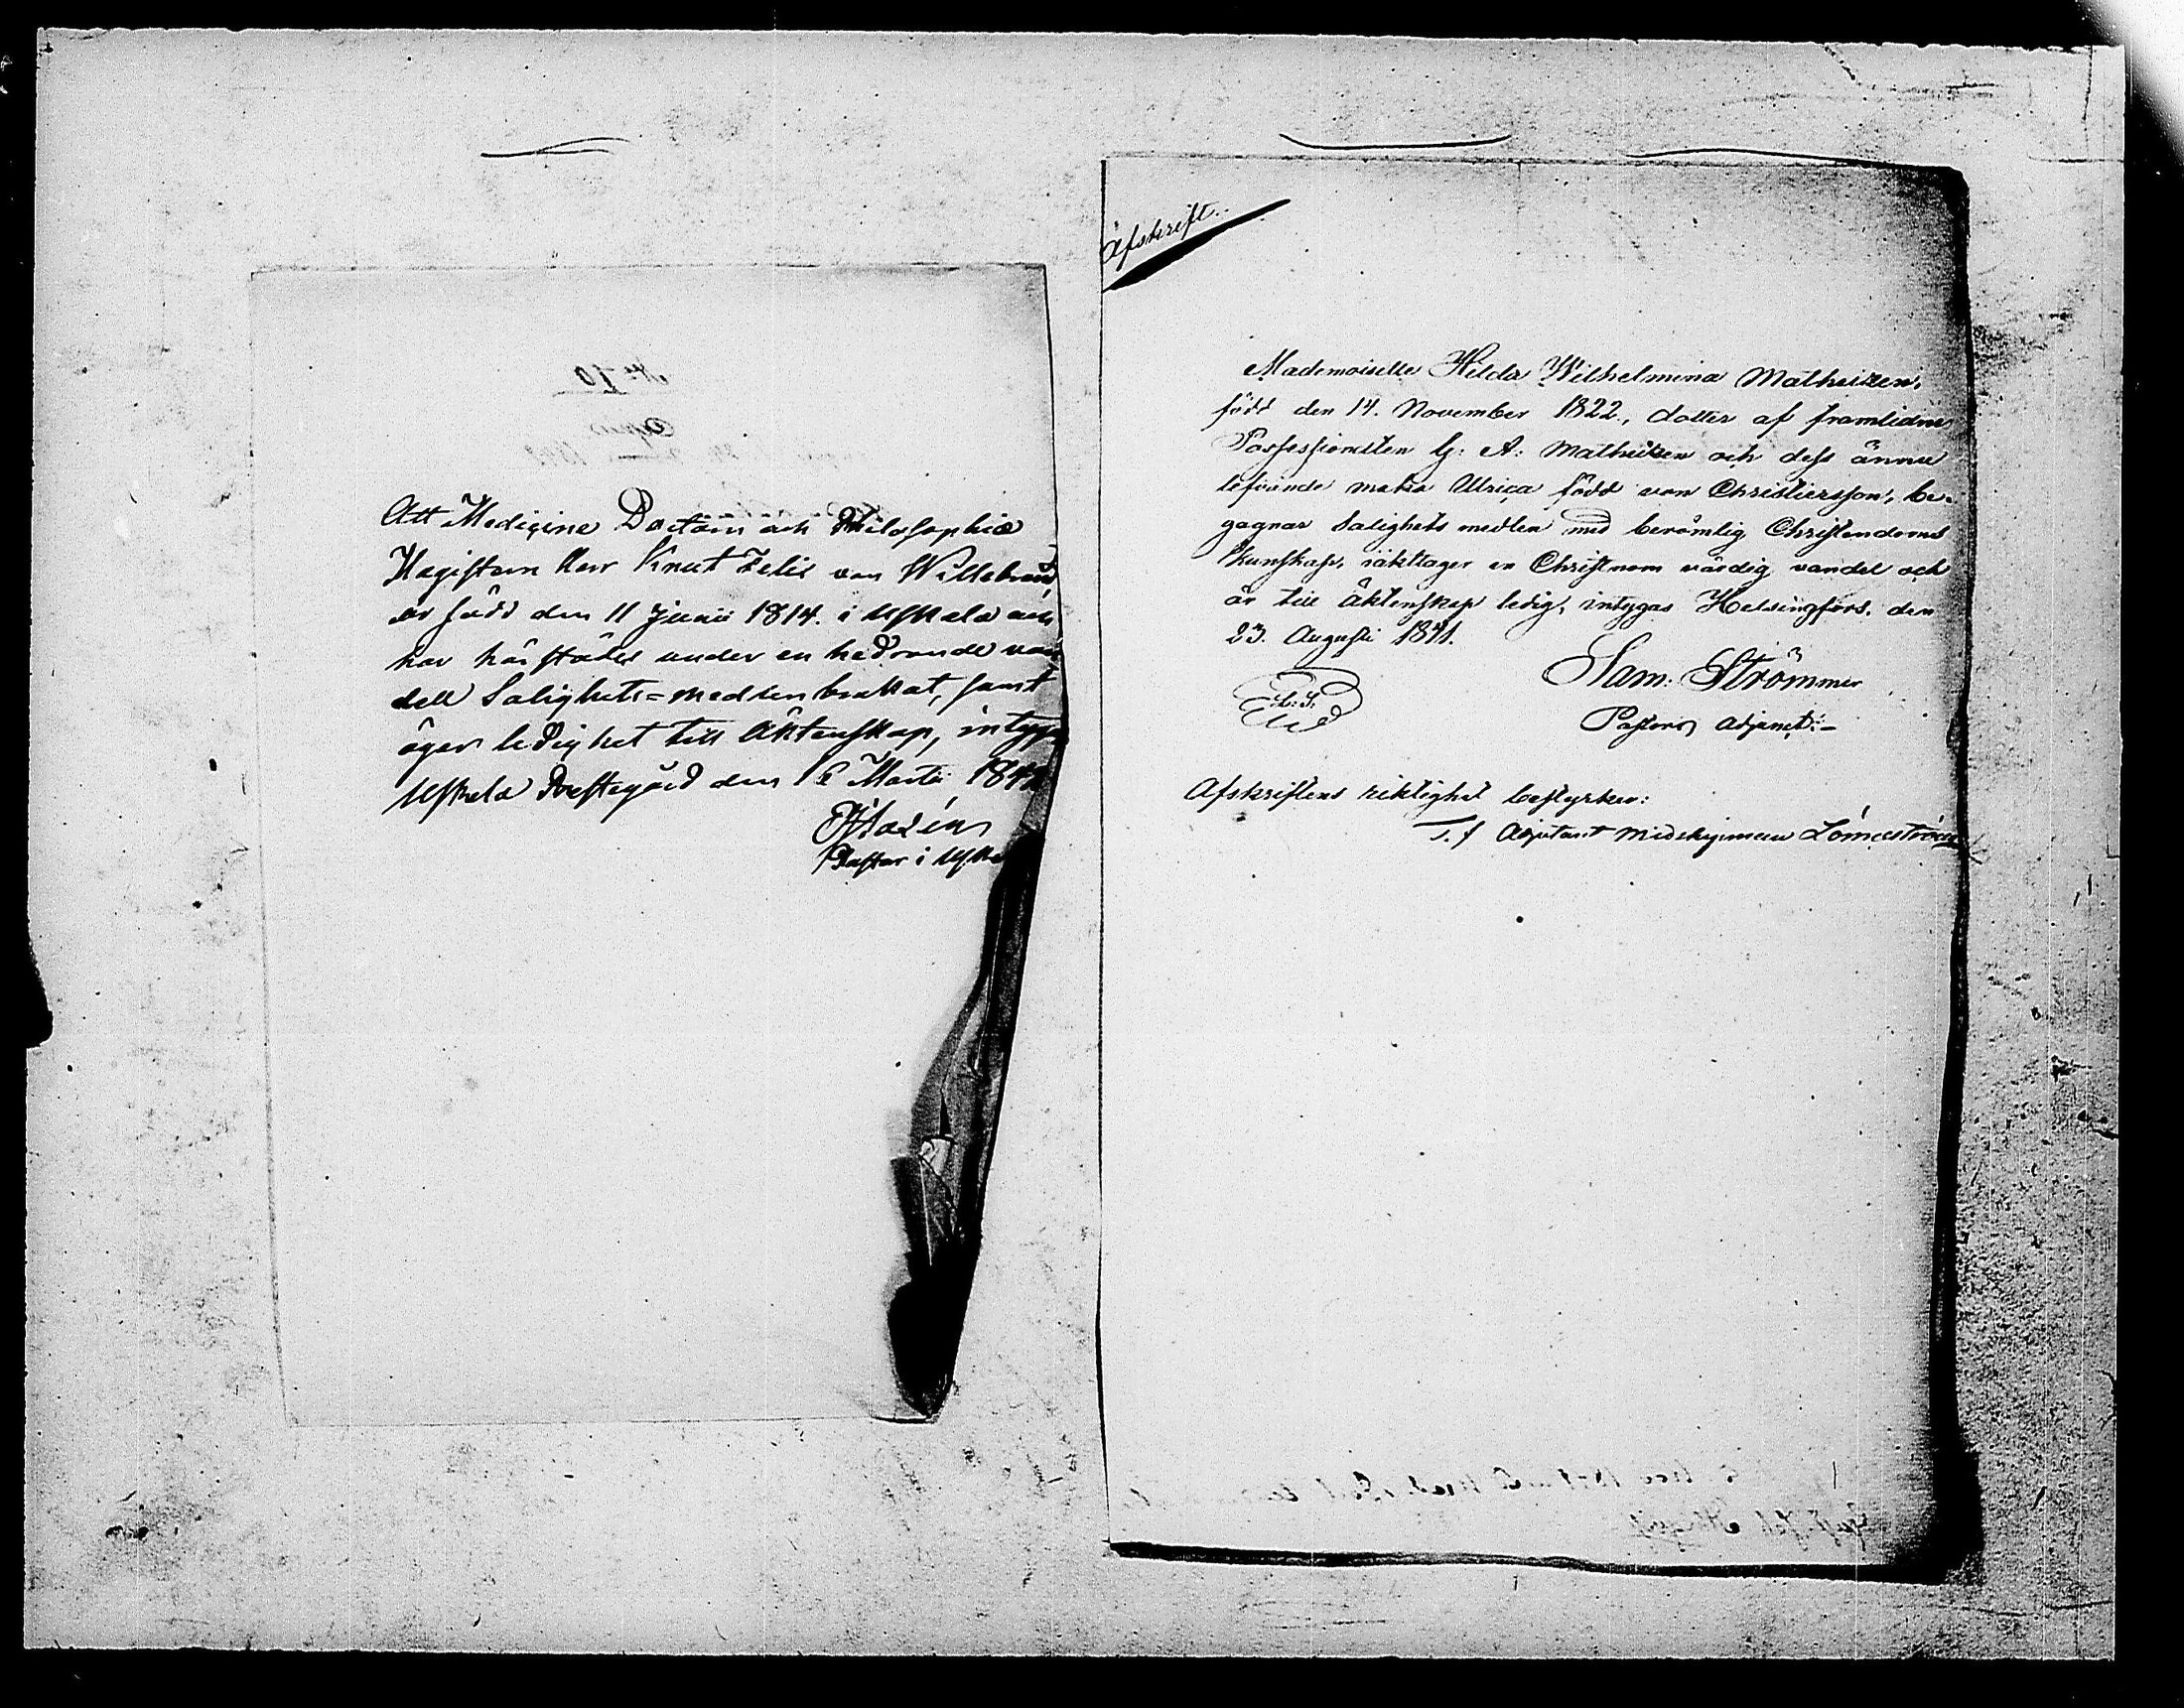 Att Medicine Doctorn och Philosophiæ
Magistern Herr Knut Felix von Willebrand
är född den 11 Junii 1814 i Uskela och
har härstädes under en hedrande van
dell Salighets=medlen brukat, samt
äger ledighet till Äktenskap, intygar
Uskela Prestegård den 16 Martii
Pastor i Uskela
Afskrift.
Mademoiselle Hilda Wilhelmina Matheiszen,
född den 14. November 1822., dotter af framlidne
Possessionaten G: A: Matheiszen och dess ännu
lefvande maka Ulrica född von Christiersson, be-
gagnar Salighets medlen med berömlig Christendoms
kunskap, iakttager en Christnom värdig vandel och
är till äktenskap ledig, intygas Helsingfors, den
23. Augusti 1841.
Sam: Strömmer
L.S.
Pastors Adjunct:-
Afskriftens riktighet bestyrker:
T. f Adjutant